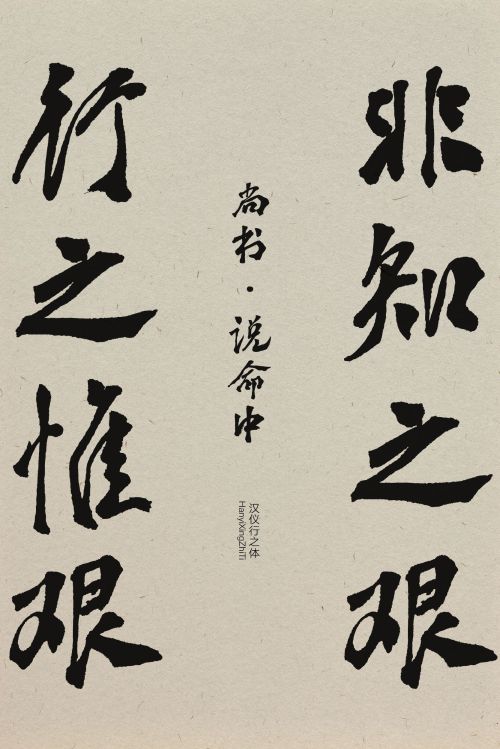 非知之艰
尚书·说命中
汉仪行之体
HanyiXingZhiTi
行之惟艰